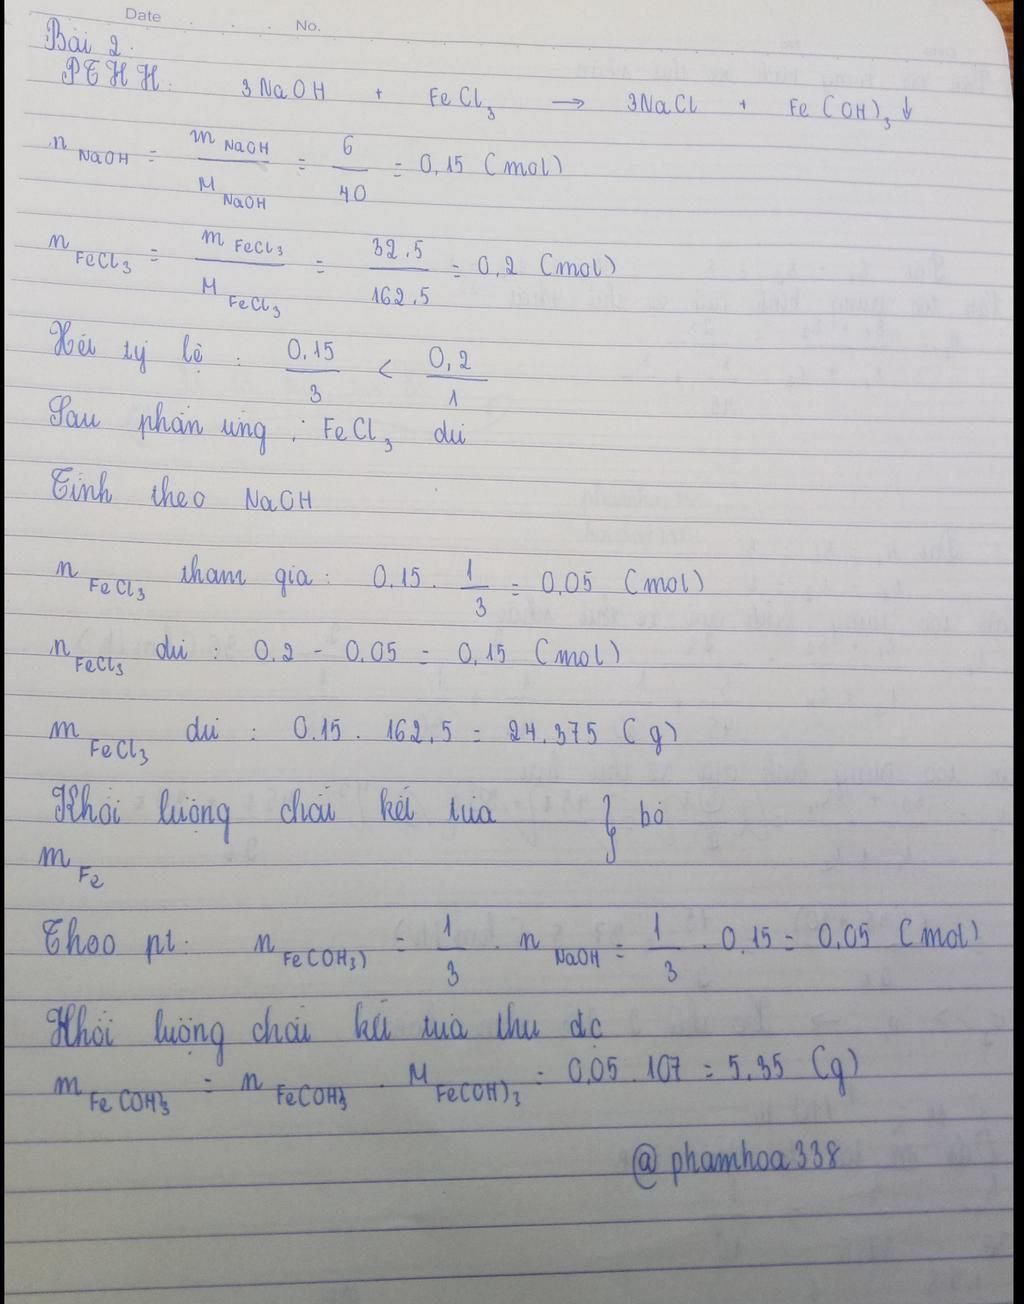 Date No.
Bài 2.
PTHH: 3NaOH + FeCl3 → 3NaCl + Fe(OH)3↓
n NaOH = m NaOH / M NaOH = 6 / 40 = 0,15 (mol)
n FeCl3 = m FeCl3 / M FeCl3 = 32.5 / 162.5 = 0,2 (mol)
Xét tỷ lệ : 0,15 / 3 < 0,2 / 1
Sau phản ứng : FeCl3 dư
Tính theo NaOH
n FeCl3 tham gia : 0,15 . 1 / 3 = 0,05 (mol)
n FeCl3 dư : 0,2 - 0,05 = 0,15 (mol)
m FeCl3 dư : 0.15 . 162,5 = 24,375 (g)
Khối lượng chất kết tủa } bỏ
m Fe
Theo pt: n Fe(OH3) = 1 / 3 . n NaOH = 1 / 3 . 0,15 = 0,05 (mol)
Khối lượng chất kết tủa thu đc
m Fe(OH)3 = n Fe(OH)3 . M Fe(OH)3 = 0,05 . 107 = 5,35 (g)
@phamhoa338